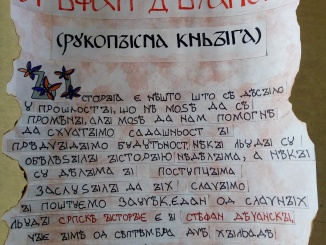 СТЕФАН ДЕЧАНСКИ
(РУКОПИСНА КЊИГА)
ИСТОРИЈА ЈЕ НЕШТО ШТО СЕ ДЕСИЛО
У ПРОШЛОСТИ, ШО НЕ МОЖЕ ДА СЕ
ПРОМЕНИ, АЛИ МОЖЕ ДА НАМ ПОМОГНЕ
ДА СХВАТИМО САДАШЊОСТ И
ПРЕДВИДИМО БУДУЋНОСТ. НЕКИ ЉУДИ СУ
ОБЕЛЕЖИЛИ ИСТОРИЈУ НЕДЕЛИМА, А НЕКИ
СУ ДЕЛИМА И ПОСТУПЦИМА
ЗАСЛУЖИЛИ ДА ИХ СЛАВИМО
И ПОШТУЈЕМО ЗАУВЕК. ЈЕДАН ОД СЛАВНИХ
ЉУДИ СРПСКЕ ИСТОРИЈЕ ЈЕ И СТЕФАН ДЕЧАНСКИ,
ЧИЈЕ ИМЕ ОД СЕПТЕМБРА ДВЕ ХИЉАДЕ